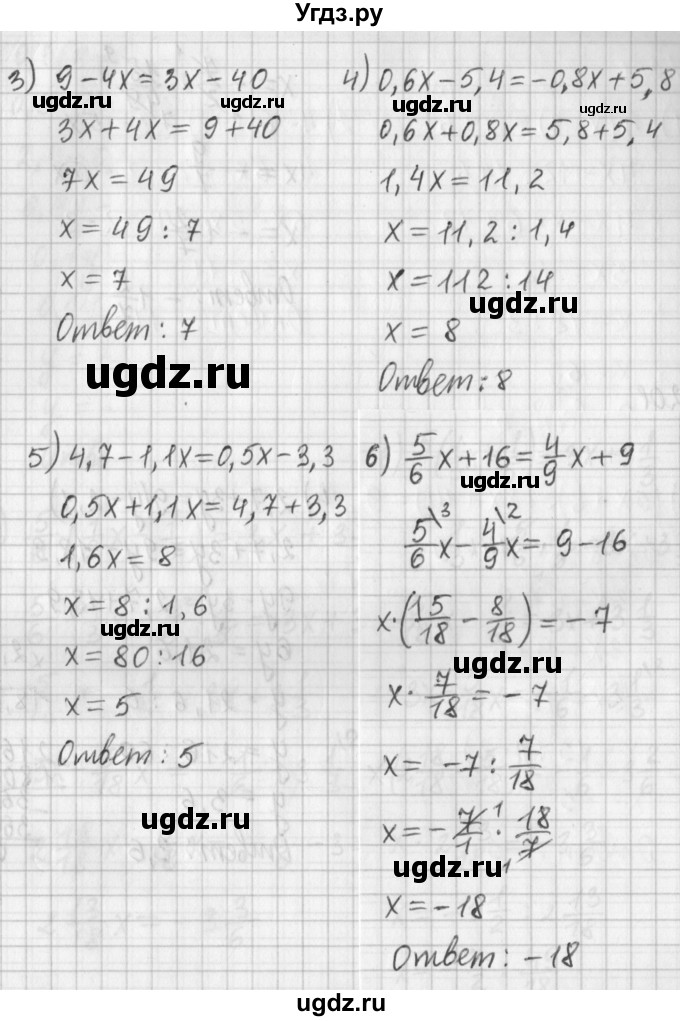 Угдз.ру
3) 9 - 4x = 3x - 40
ugdz.ru
3x + 4x = 9 + 40
7x = 49
x = 49 : 7
x = 7
Ответ: 7
ugdz.ru
4) 0,6x - 5,4 = -0,8x + 5,8
ugdz.ru
ugdz.ru
0,6x + 0,8x = 5,8 + 5,4
1,4x = 11,2
x = 11,2 : 1,4
x = 112 : 14
ugdz.ru
x = 8
Ответ: 8
5) 4,7 - 1,1x = 0,5x - 3,3
0,5x + 1,1x = 4,7 + 3,3
1,6x = 8
x = 8 : 1,6
ugdz.ru
x = 80 : 16
x = 5
Ответ: 5
ugdz.ru
6) 5/6 x + 16 = 4/9 x + 9
ugdz.ru
5/6 \3 x - 4/9 \2 x = 9 - 16
x · (15/18 - 8/18) = -7
ugdz.ru
x · 7/18 = -7
x = -7 : 7/18
x = - 7/1 1 · 18/7 1
ugdz.ru
x = -18
Ответ: -18
ugdz.ru